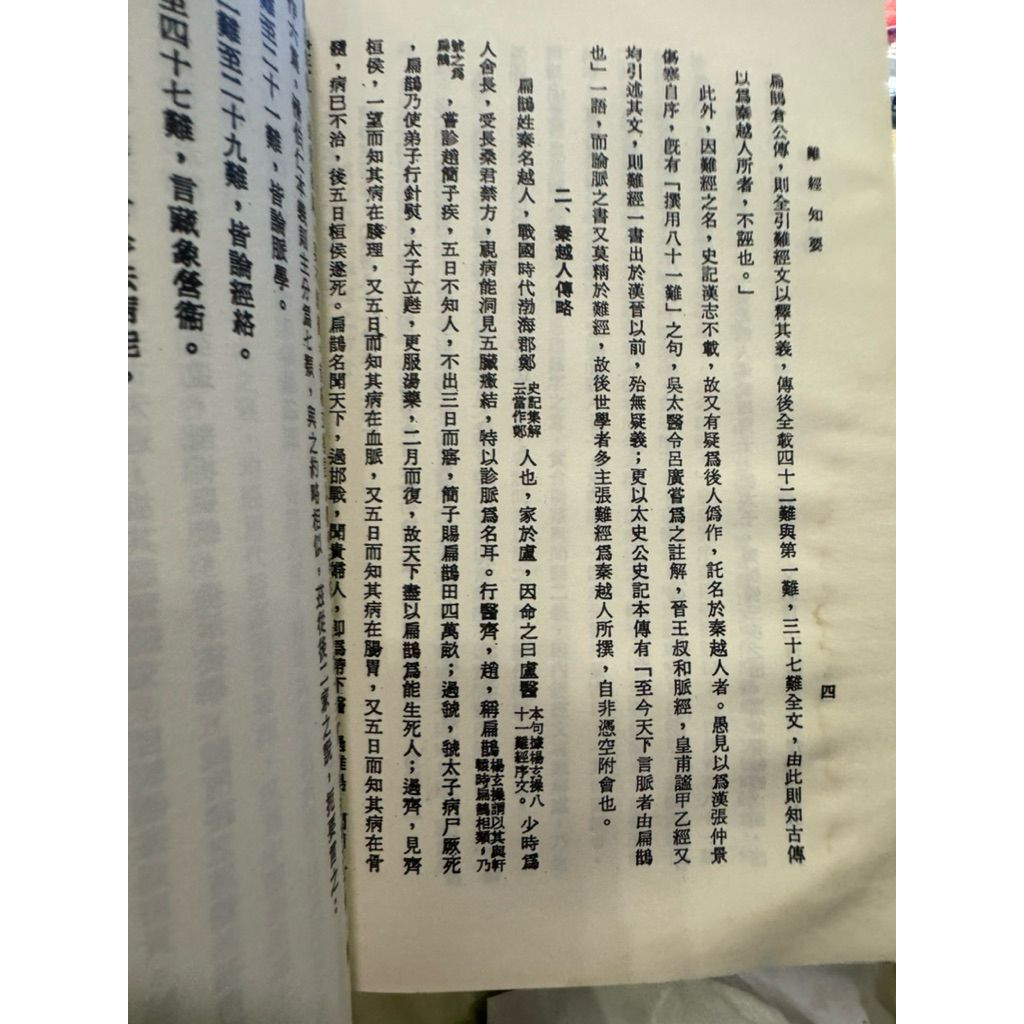 難經知要
四
扁鵲倉公傳，則全引難經文以釋其義，傳後全載四十二難與第一難，三十七難全文，由此則知古傳
以爲秦越人所者，不誣也。」
此外，因難經之名，史記漢志不載，故又有疑爲後人僞作，託名於秦越人者。愚見以爲漢張仲景
傷寒自序，旣有「撰用八十一難」之句，吳太醫令呂廣嘗爲之註解，晉王叔和脈經，皇甫謐甲乙經又
均引述其文，則難經一書出於漢晉以前，殆無疑義；更以太史公史記本傳有「至今天下言脈者由扁鵲
也」一語，而論脈之書又莫精於難經，故後世學者多主張難經爲秦越人所撰，自非憑空附會也。
二、秦越人傳略
扁鵲姓秦名越人，戰國時代渤海郡鄭史記集解云當作鄚人也，家於盧，因命之曰盧醫本句據楊玄操八十一難經序文。少時爲
人舍長，受長桑君禁方，視病能洞見五臟癥結，特以診脈爲名耳。行醫齊，趙，稱扁鵲楊玄操謂以其與軒轅時扁鵲相類，乃
號之爲扁鵲，嘗診趙簡子疾，五日不知人，不出三日而寤，簡子賜扁鵲田四萬畝；過虢，虢太子病尸厥死
，扁鵲乃使弟子行針熨，太子立甦，更服湯藥，二月而復，故天下盡以扁鵲爲能生死人；過齊，見齊
桓侯，一望而知其病在腠理，又五日而知其病在血脈，又五日而知其病在腸胃，又五日而知其病在骨
髓，病已不治，後五日桓侯遂死。扁鵲名聞天下，過邯戰，聞貴婦人，卽爲帶下醫，
二難至二十一難，皆論脈學。
難至二十九難，皆論經絡。
至四十七難，言藏象營衞。